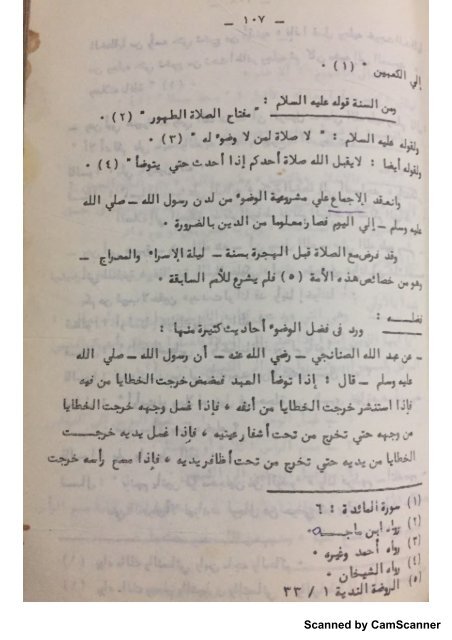 — ١٠٧ —
إلي الكعبين " (١) ٠
ومن السنة قوله عليه السلام : " مفتاح الصلاة الطهور " (٢) ٠
ولقوله عليه السلام : " لا صلاة لمن لا وضوء له " (٣) ٠
ولقوله أيضا : لايقبل الله صلاة أحدكم إذا أحدث حتي يتوضأ " (٤) ٠
وانعقد الإجماع علي مشروعية الوضوء من لدن رسول الله ــ صلي الله
عليه وسلم ــ إلي اليوم فصار معلوما من الدين بالضرورة ٠
وقد فرض مع الصلاة قبل الهجرة بسنة ــ ليلة الإسراء والمعراج ــ
وهو من خصائص هذه الأمة (٥) فلم يشرع للأمم السابقة ٠
فضلـــه :
ورد فى فضل الوضوء أحاديث كثيرة منها :
ــ عن عبد الله الصنابحي ــ رضي الله عنه ــ أن رسول الله ــ صلي الله
عليه وسلم ــ قال : إذا توضأ العبد فمضمض خرجت الخطايا من فيه
فإذا استنشر خرجت الخطايا من أنفه ، فإذا غسل وجهه خرجت الخطايا
من وجهه حتي تخرج من تحت أشفار عينيه ، فإذا غسل يديه خرجـــت
الخطايا من يديه حتي تخرج من تحت أظافر يديه ، فإذا مسح رأسه خرجت
(١) سورة المائدة : ٦
(٢) رواه ابن ماجـــه ٠
(٣) رواه أحمد وغيره ٠
(٤) رواه الشيخان ٠
(٥) الروضة الندية ١ / ٣٣
Scanned by CamScanner